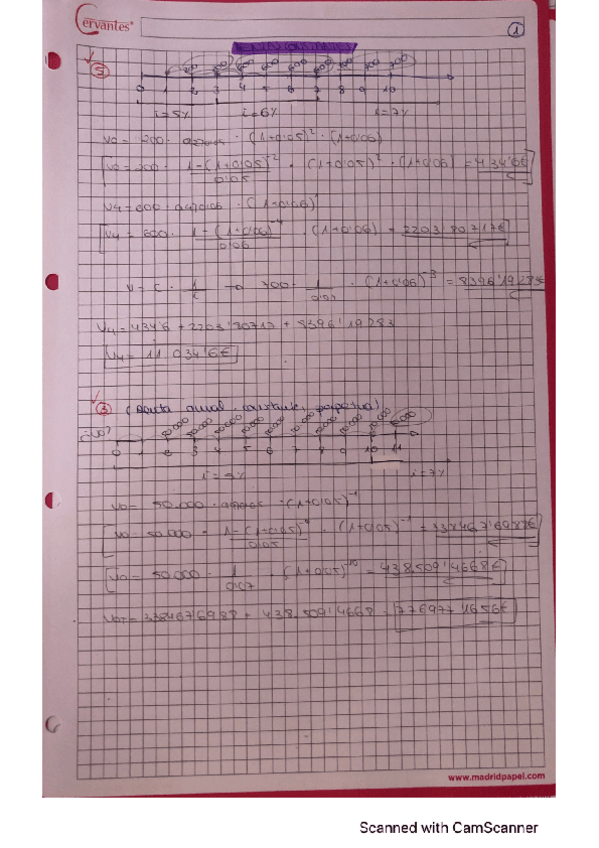 Cervantes
1
5
0 1 2 3 4 5 6 7 8 9 10
i=5% i=6% i=7%
V0 = 200 · (1+0'05)² · (1+0'06)
V0=200 · 1-(1+0'05)⁻² / 0'05 · (1+0'05)² · (1+0'06) = 434'6€
V4=600 · (1+0'06)
V4 = 600 · 1-(1+0'06)⁻⁴ / 0'06 · (1+0'06) = 2203'80717€
V=C · 1/i → 700 · 1/0'07 · (1+0'06)⁻³ = 8396'19283€
V4=434'6 + 2203'80717 + 8396'19283
V4= 11.034'6€
6 (Renta anual, constante, perpetua)
¿V0?
50.000 50.000 50.000 50.000 50.000 50.000 50.000 50.000
0 1 2 3 4 5 6 7 8 9 10 11
i=5% i=7%
V0= 50.000 · (1+0'05)⁻¹
V0= 50.000 · 1-(1+0'05) / 0'05 · (1+0'05)⁻¹ = 338467'6988€
V0 = 50.000 · 1/0'07 · (1+0'05)⁻¹⁰ = 438.509'4668€
V0T=338467'6988 + 438.509'4668 = 776977'1656€
www.madridpapel.com
Scanned with CamScanner